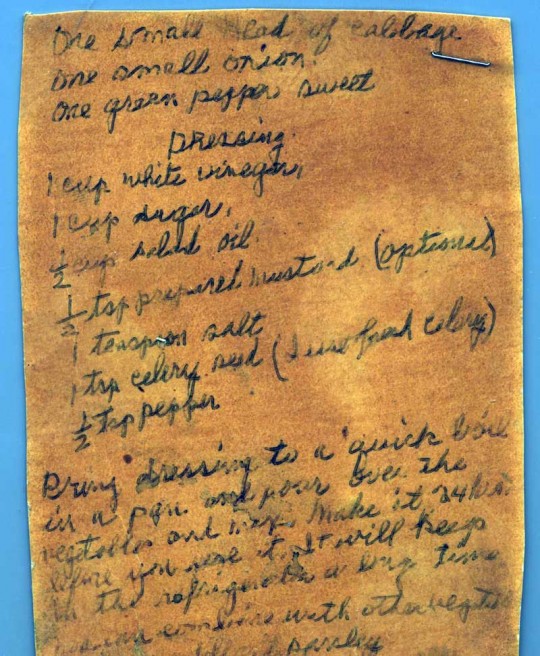 One small head of cabbage
One small onion.
One green pepper sweet
Dressing.
1 cup white vinegar,
1 cup sugar,
1/2 cup salad oil.
1/2 tsp prepared mustard (optional)
1 teaspoon salt
1 tsp celery seed (I use fresh celery)
1/2 tsp pepper
Bring dressing to a quick boil
in a pan and pour over the
vegetables and mix. Make it 24 hrs.
before you use it. It will keep
in the refrigerator a long time
can combine with other
parsley